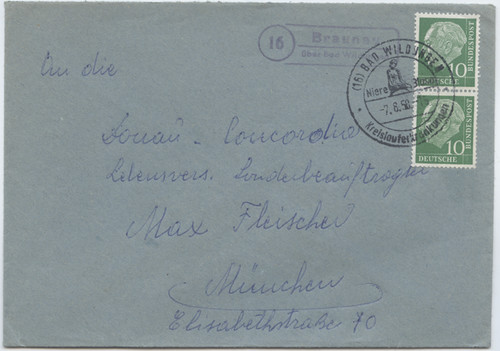 16
Braunau
über Bad Wildungen
(16) BAD WILDUNGEN
Niere
-7.8.
Kreislauferkrankungen
10
DEUTSCHE
BUNDESPOST
10
DEUTSCHE
BUNDESPOST
An die
Donau-Concordia
Lebensvers. Sonderbeauftragter
Max Fleischer
München
Elisabethstraße 70